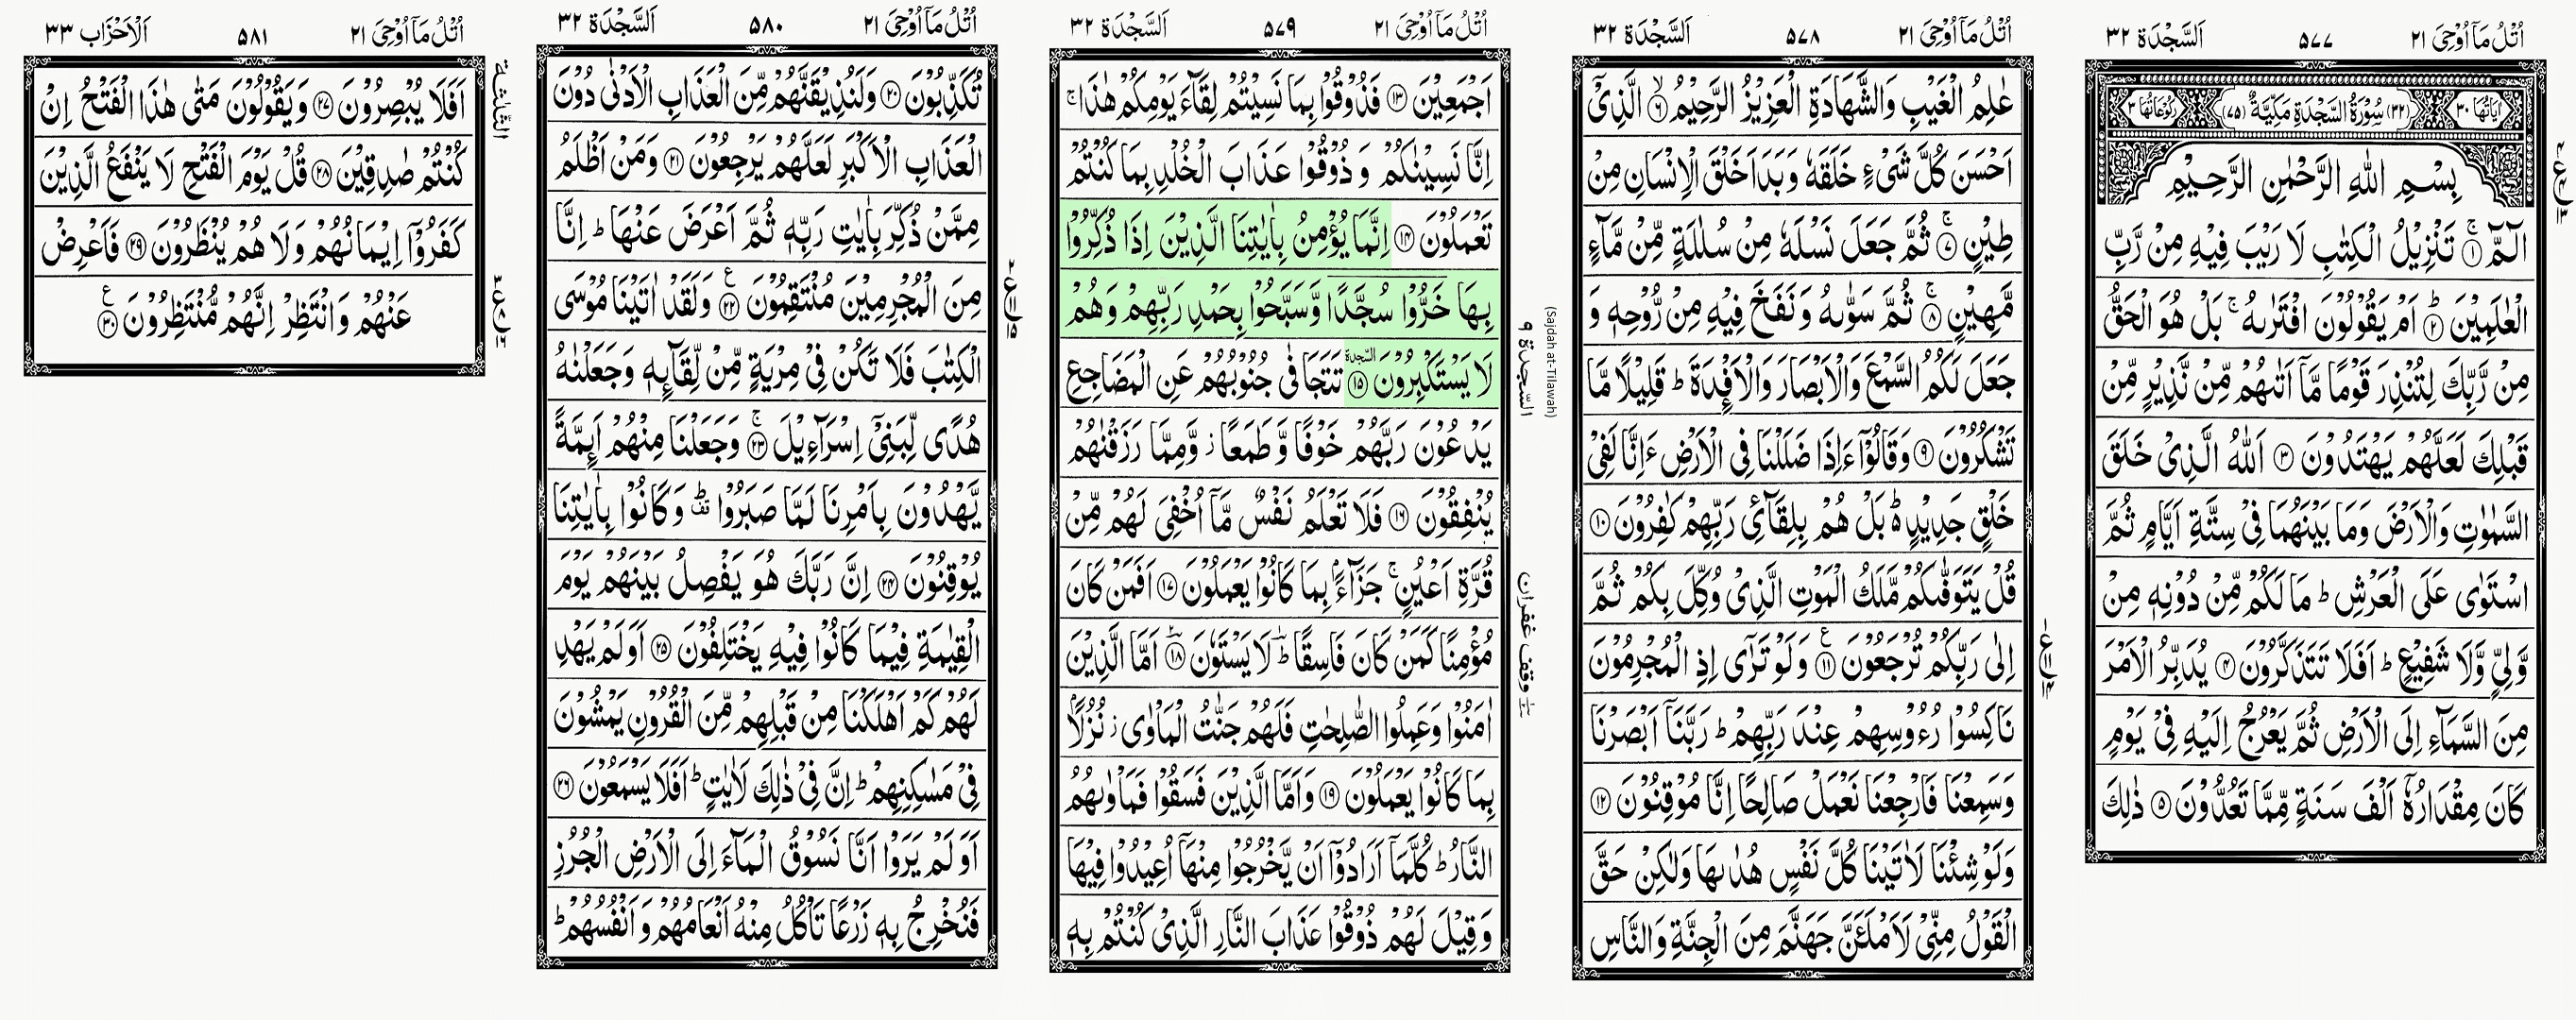 اُتْلُ مَاۤ اُوْحِیَ ۲۱ ۵۷۷ اَلسَّجْدَة ۳۲
اٰیَاتُهَا ۳۰ (۳۲) سُوْرَةُ السَّجْدَةِ مَكِّیَّةٌ (۷۵) رُكُوْعَاتُهَا ۳
بِسْمِ اللّٰهِ الرَّحْمٰنِ الرَّحِیْمِ
الٓمّٓ ۚ﴿۱﴾ تَنْزِیْلُ الْكِتٰبِ لَا رَیْبَ فِیْهِ مِنْ رَّبِّ
الْعٰلَمِیْنَ ؕ﴿۲﴾ اَمْ یَقُوْلُوْنَ افْتَرٰىهُ ۚ بَلْ هُوَ الْحَقُّ
مِنْ رَّبِّكَ لِتُنْذِرَ قَوْمًا مَّاۤ اَتٰىهُمْ مِّنْ نَّذِیْرٍ مِّنْ
قَبْلِكَ لَعَلَّهُمْ یَهْتَدُوْنَ ﴿۳﴾ اَللّٰهُ الَّذِیْ خَلَقَ
السَّمٰوٰتِ وَالْاَرْضَ وَمَا بَیْنَهُمَا فِیْ سِتَّةِ اَیَّامٍ ثُمَّ
اسْتَوٰی عَلَی الْعَرْشِ ؕ مَا لَكُمْ مِّنْ دُوْنِهٖ مِنْ
وَّلِیٍّ وَّلَا شَفِیْعٍ ؕ اَفَلَا تَتَذَكَّرُوْنَ ﴿۴﴾ یُدَبِّرُ الْاَمْرَ
مِنَ السَّمَآءِ اِلَی الْاَرْضِ ثُمَّ یَعْرُجُ اِلَیْهِ فِیْ یَوْمٍ
كَانَ مِقْدَارُهٗۤ اَلْفَ سَنَةٍ مِّمَّا تَعُدُّوْنَ ﴿۵﴾ ذٰلِكَ
اُتْلُ مَاۤ اُوْحِیَ ۲۱ ۵۷۸ اَلسَّجْدَة ۳۲
عٰلِمُ الْغَیْبِ وَالشَّهَادَةِ الْعَزِیْزُ الرَّحِیْمُ ۙ﴿۶﴾ الَّذِیْۤ
اَحْسَنَ كُلَّ شَیْءٍ خَلَقَهٗ وَبَدَاَ خَلْقَ الْاِنْسَانِ مِنْ
طِیْنٍ ۚ﴿۷﴾ ثُمَّ جَعَلَ نَسْلَهٗ مِنْ سُلٰلَةٍ مِّنْ مَّآءٍ
مَّهِیْنٍ ۚ﴿۸﴾ ثُمَّ سَوّٰىهُ وَنَفَخَ فِیْهِ مِنْ رُّوْحِهٖ وَ
جَعَلَ لَكُمُ السَّمْعَ وَالْاَبْصَارَ وَالْاَفْـِٕدَةَ ؕ قَلِیْلًا مَّا
تَشْكُرُوْنَ ﴿۹﴾ وَقَالُوْۤا ءَاِذَا ضَلَلْنَا فِی الْاَرْضِ ءَاِنَّا لَفِیْ
خَلْقٍ جَدِیْدٍ ؕ۬ بَلْ هُمْ بِلِقَآئِ رَبِّهِمْ كٰفِرُوْنَ ﴿۱۰﴾
قُلْ یَتَوَفّٰىكُمْ مَّلَكُ الْمَوْتِ الَّذِیْ وُكِّلَ بِكُمْ ثُمَّ
اِلٰی رَبِّكُمْ تُرْجَعُوْنَ ۠﴿۱۱﴾ وَلَوْ تَرٰۤی اِذِ الْمُجْرِمُوْنَ
نَاكِسُوْا رُءُوْسِهِمْ عِنْدَ رَبِّهِمْ ؕ رَبَّنَاۤ اَبْصَرْنَا
وَسَمِعْنَا فَارْجِعْنَا نَعْمَلْ صَالِحًا اِنَّا مُوْقِنُوْنَ ﴿۱۲﴾
وَلَوْ شِئْنَا لَاٰتَیْنَا كُلَّ نَفْسٍ هُدٰىهَا وَلٰكِنْ حَقَّ
الْقَوْلُ مِنِّیْ لَاَمْلَـَٔنَّ جَهَنَّمَ مِنَ الْجِنَّةِ وَالنَّاسِ
اُتْلُ مَاۤ اُوْحِیَ ۲۱ ۵۷۹ اَلسَّجْدَة ۳۲
اَجْمَعِیْنَ ﴿۱۳﴾ فَذُوْقُوْا بِمَا نَسِیْتُمْ لِقَآءَ یَوْمِكُمْ هٰذَا ۚ
اِنَّا نَسِیْنٰكُمْ وَذُوْقُوْا عَذَابَ الْخُلْدِ بِمَا كُنْتُمْ
تَعْمَلُوْنَ ﴿۱۴﴾ اِنَّمَا یُؤْمِنُ بِاٰیٰتِنَا الَّذِیْنَ اِذَا ذُكِّرُوْا
بِهَا خَرُّوْا سُجَّدًا وَّسَبَّحُوْا بِحَمْدِ رَبِّهِمْ وَهُمْ
لَا یَسْتَكْبِرُوْنَ السجدة ﴿۱۵﴾ تَتَجَافٰی جُنُوْبُهُمْ عَنِ الْمَضَاجِعِ
یَدْعُوْنَ رَبَّهُمْ خَوْفًا وَّطَمَعًا ؗ وَّمِمَّا رَزَقْنٰهُمْ
یُنْفِقُوْنَ ﴿۱۶﴾ فَلَا تَعْلَمُ نَفْسٌ مَّاۤ اُخْفِیَ لَهُمْ مِّنْ
قُرَّةِ اَعْیُنٍ ۚ جَزَآءًۢ بِمَا كَانُوْا یَعْمَلُوْنَ ﴿۱۷﴾ اَفَمَنْ كَانَ
مُؤْمِنًا كَمَنْ كَانَ فَاسِقًا ؔؕ لَا یَسْتَوٗنَ ﴿۱۸﴾ اَمَّا الَّذِیْنَ
اٰمَنُوْا وَعَمِلُوا الصّٰلِحٰتِ فَلَهُمْ جَنّٰتُ الْمَاْوٰی ؗ نُزُلًۢا
بِمَا كَانُوْا یَعْمَلُوْنَ ﴿۱۹﴾ وَاَمَّا الَّذِیْنَ فَسَقُوْا فَمَاْوٰىهُمُ
النَّارُ ؕ كُلَّمَاۤ اَرَادُوْۤا اَنْ یَّخْرُجُوْا مِنْهَاۤ اُعِیْدُوْا فِیْهَا
وَقِیْلَ لَهُمْ ذُوْقُوْا عَذَابَ النَّارِ الَّذِیْ كُنْتُمْ بِهٖ
السجدة ۹
(Sajdah at-Tilawah)
وقف غفران
اُتْلُ مَاۤ اُوْحِیَ ۲۱ ۵۸۰ اَلسَّجْدَة ۳۲
تُكَذِّبُوْنَ ﴿۲۰﴾ وَلَنُذِیْقَنَّهُمْ مِّنَ الْعَذَابِ الْاَدْنٰی دُوْنَ
الْعَذَابِ الْاَكْبَرِ لَعَلَّهُمْ یَرْجِعُوْنَ ﴿۲۱﴾ وَمَنْ اَظْلَمُ
مِمَّنْ ذُكِّرَ بِاٰیٰتِ رَبِّهٖ ثُمَّ اَعْرَضَ عَنْهَا ؕ اِنَّا
مِنَ الْمُجْرِمِیْنَ مُنْتَقِمُوْنَ ۠﴿۲۲﴾ وَلَقَدْ اٰتَیْنَا مُوْسَی
الْكِتٰبَ فَلَا تَكُنْ فِیْ مِرْیَةٍ مِّنْ لِّقَآئِهٖ وَجَعَلْنٰهُ
هُدًی لِّبَنِیْۤ اِسْرَآءِیْلَ ۚ﴿۲۳﴾ وَجَعَلْنَا مِنْهُمْ اَىِٕمَّةً
یَّهْدُوْنَ بِاَمْرِنَا لَمَّا صَبَرُوْا ؕ۫ وَكَانُوْا بِاٰیٰتِنَا
یُوْقِنُوْنَ ﴿۲۴﴾ اِنَّ رَبَّكَ هُوَ یَفْصِلُ بَیْنَهُمْ یَوْمَ
الْقِیٰمَةِ فِیْمَا كَانُوْا فِیْهِ یَخْتَلِفُوْنَ ﴿۲۵﴾ اَوَلَمْ یَهْدِ
لَهُمْ كَمْ اَهْلَكْنَا مِنْ قَبْلِهِمْ مِّنَ الْقُرُوْنِ یَمْشُوْنَ
فِیْ مَسٰكِنِهِمْ ؕ اِنَّ فِیْ ذٰلِكَ لَاٰیٰتٍ ؕ اَفَلَا یَسْمَعُوْنَ ﴿۲۶﴾
اَوَلَمْ یَرَوْا اَنَّا نَسُوْقُ الْمَآءَ اِلَی الْاَرْضِ الْجُرُزِ
فَنُخْرِجُ بِهٖ زَرْعًا تَاْكُلُ مِنْهُ اَنْعَامُهُمْ وَاَنْفُسُهُمْ ؕ
اُتْلُ مَاۤ اُوْحِیَ ۲۱ ۵۸۱ اَلْاَحْزَاب ۳۳
اَفَلَا یُبْصِرُوْنَ ﴿۲۷﴾ وَیَقُوْلُوْنَ مَتٰی هٰذَا الْفَتْحُ اِنْ
كُنْتُمْ صٰدِقِیْنَ ﴿۲۸﴾ قُلْ یَوْمَ الْفَتْحِ لَا یَنْفَعُ الَّذِیْنَ
كَفَرُوْۤا اِیْمَانُهُمْ وَلَا هُمْ یُنْظَرُوْنَ ﴿۲۹﴾ فَاَعْرِضْ
عَنْهُمْ وَانْتَظِرْ اِنَّهُمْ مُّنْتَظِرُوْنَ ۠﴿۳۰﴾
الثلٰثة